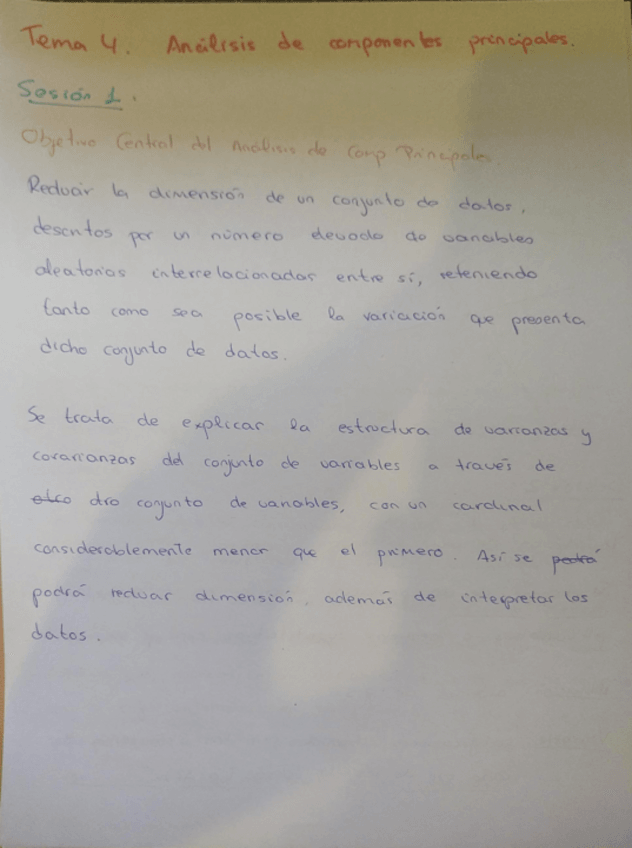 Tema 4. Análisis de componentes principales.
Sesión 1.
Objetivo Central del Análisis de Comp Principales.
Reducir la dimensión de un conjunto de datos,
descritos por un número elevado de variables
aleatorias interrelacionadas entre sí, reteniendo
tanto como sea posible la variación que presenta
dicho conjunto de datos.
Se trata de explicar la estructura de varianzas y
covarianzas del conjunto de variables a través de
otro conjunto de variables, con un cardinal
considerablemente menor que el primero. Así se podrá
podrá reducir dimensión, además de interpretar los
datos.